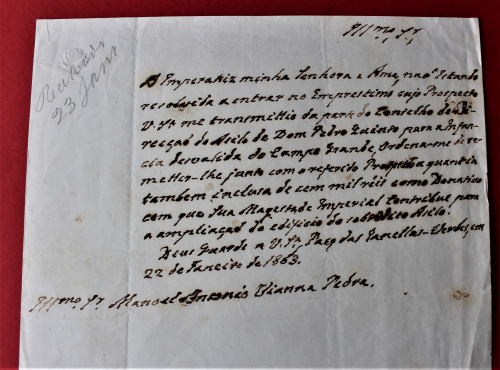 Illmo. Sr.
Recebida
23 Janr
A Imperatriz minha Senhora e Ama, não Estando
resolvida a entrar no Emprestimo cujo Prospecto
V. Sa. me transmettio da parte do Conselho de Di-
recção do Asilo de Dom Pedro Quinto para a Infan-
cia desvalida do Campo Grande, Ordena-me de re-
metter-lhe junto com o referido Prospecto a quantia
tambem inclusa de cem mil réis como Donativo
com que Sua Magestade Imperial Contribue para
a ampliação do edificio do sobredito Asilo.
Deus Guarde a V. Sa. Paço das Janellas-Verdes, em
22 de Janeiro de 1863.
Illmo. Sr. Manoel Antonio Vianna Pedra.